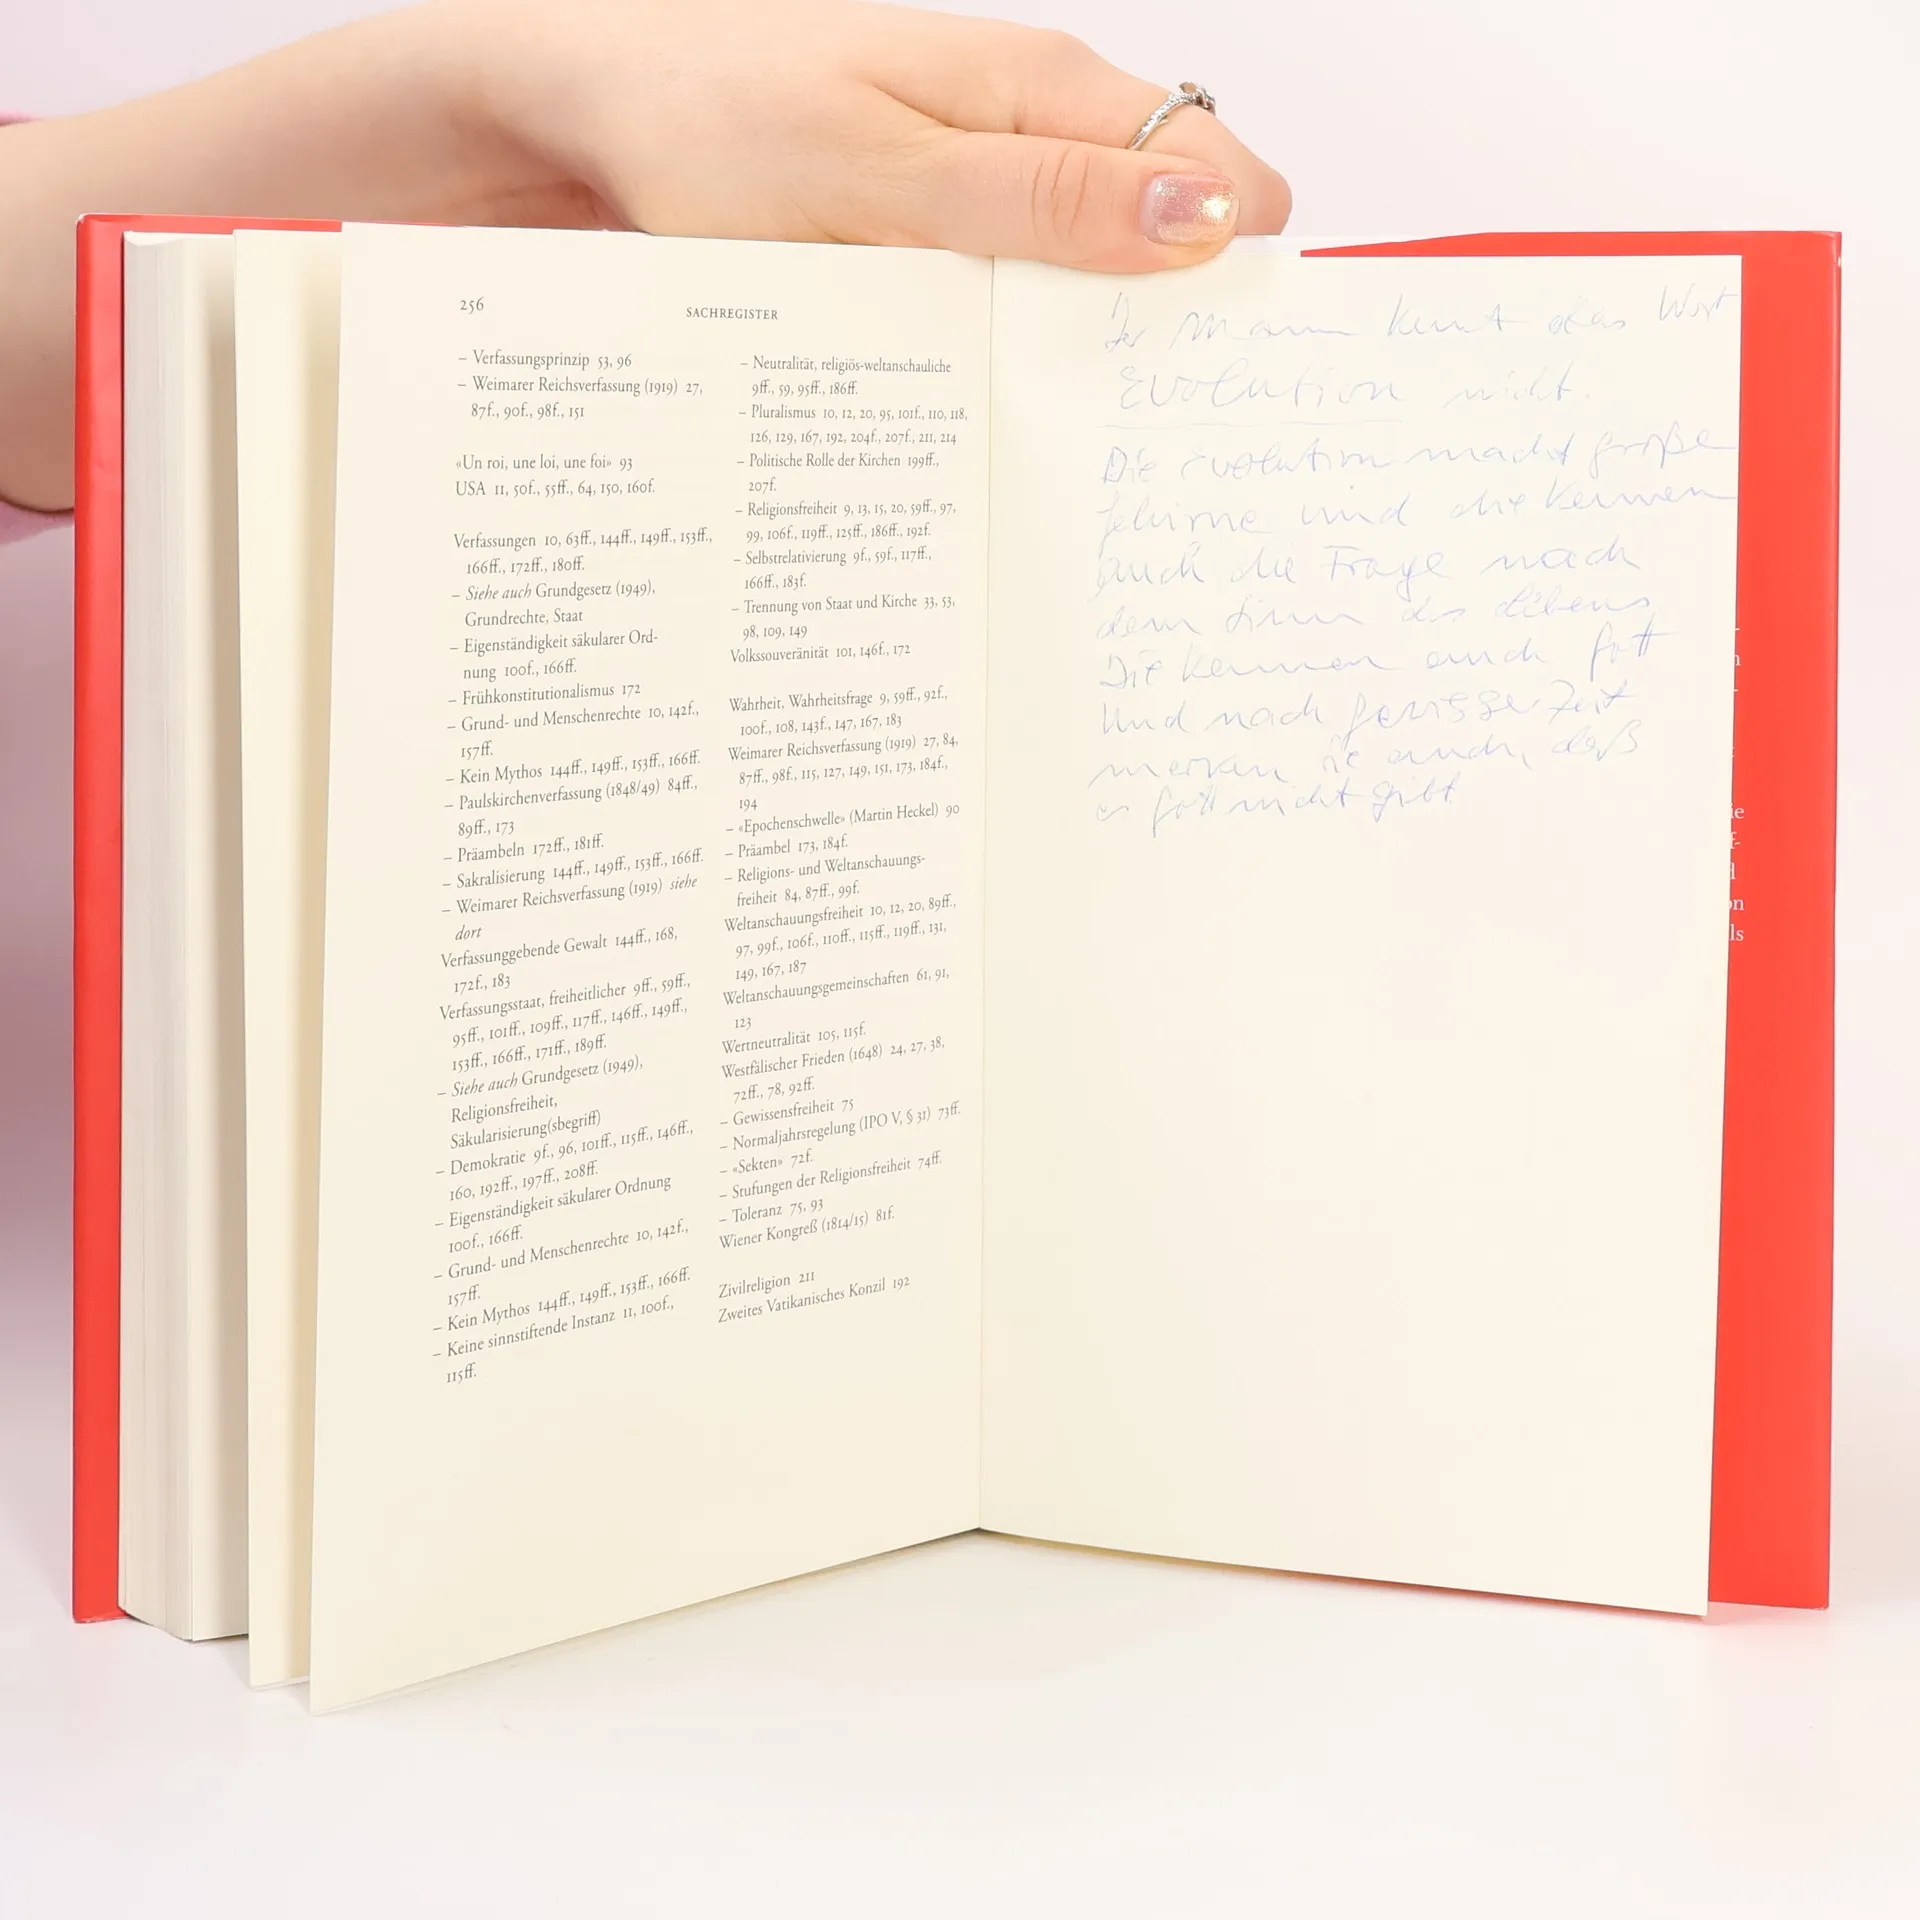 256
SACHREGISTER
– Verfassungsprinzip 53, 96
– Weimarer Reichsverfassung (1919) 27,
87f., 90f., 98f., 151
«Un roi, une loi, une foi» 93
USA 11, 50f., 55ff., 64, 150, 160f.
Verfassungen 10, 63ff., 144ff., 149ff., 153ff.,
166ff., 172ff., 180ff.
– Siehe auch Grundgesetz (1949),
Grundrechte, Staat
– Eigenständigkeit säkularer Ord-
nung 100f., 166ff.
– Frühkonstitutionalismus 172
– Grund- und Menschenrechte 10, 142f.,
157ff.
– Kein Mythos 144ff., 149ff., 153ff., 166ff.
– Paulskirchenverfassung (1848/49) 84ff.,
89ff., 173
– Präambeln 172ff., 181ff.
– Sakralisierung 144ff., 149ff., 153ff., 166ff.
– Weimarer Reichsverfassung (1919) siehe
dort
Verfassunggebende Gewalt 144ff., 168,
172f., 183
Verfassungsstaat, freiheitlicher 9ff., 59ff.,
95ff., 101ff., 109ff., 117ff., 146ff., 149ff.,
153ff., 166ff., 171ff., 189ff.
– Siehe auch Grundgesetz (1949),
Religionsfreiheit,
Säkularisierung(sbegriff)
– Demokratie 9f., 96, 101ff., 115ff., 146ff.,
160, 192ff., 197ff., 208ff.
– Eigenständigkeit säkularer Ordnung
100f., 166ff.
– Grund- und Menschenrechte 10, 142f.,
157ff.
– Kein Mythos 144ff., 149ff., 153ff., 166ff.
– Keine sinnstiftende Instanz 11, 100f.,
115ff.
– Neutralität, religiös-weltanschauliche
9ff., 59, 95ff., 186ff.
– Pluralismus 10, 12, 20, 95, 101f., 110, 118,
126, 129, 167, 192, 204f., 207f., 211, 214
– Politische Rolle der Kirchen 199ff.,
207f.
– Religionsfreiheit 9, 13, 15, 20, 59ff., 97,
99, 106f., 119ff., 125ff., 186ff., 192f.
– Selbstrelativierung 9f., 59f., 117ff.,
166ff., 183f.
– Trennung von Staat und Kirche 33, 53,
98, 109, 149
Volkssouveränität 101, 146f., 172
Wahrheit, Wahrheitsfrage 9, 59ff., 92f.,
100f., 108, 143f., 147, 167, 183
Weimarer Reichsverfassung (1919) 27, 84,
87ff., 98f., 115, 127, 149, 151, 173, 184f.,
194
– «Epochenschwelle» (Martin Heckel) 90
– Präambel 173, 184f.
– Religions- und Weltanschauungs-
freiheit 84, 87ff., 99f.
Weltanschauungsfreiheit 10, 12, 20, 89ff.,
97, 99f., 106f., 110ff., 115ff., 119ff., 131,
149, 167, 187
Weltanschauungsgemeinschaften 61, 91,
123
Wertneutralität 105, 115f.
Westfälischer Frieden (1648) 24, 27, 38,
72ff., 78, 92ff.
– Gewissensfreiheit 75
– Normaljahrsregelung (IPO V, § 31) 73ff.
– «Sekten» 72f.
– Stufungen der Religionsfreiheit 74ff.
– Toleranz 75, 93
Wiener Kongreß (1814/15) 81f.
Zivilreligion 211
Zweites Vatikanisches Konzil 192
Der Mann kennt das Wort
Evolution nicht.
Die Evolution macht große
Gehirne und die kennen
auch die Frage nach
dem Sinn des Lebens.
Die kennen auch Gott
und nach gewisser Zeit
merken sie auch, daß
es Gott nicht gibt
ie
f-
on
ls